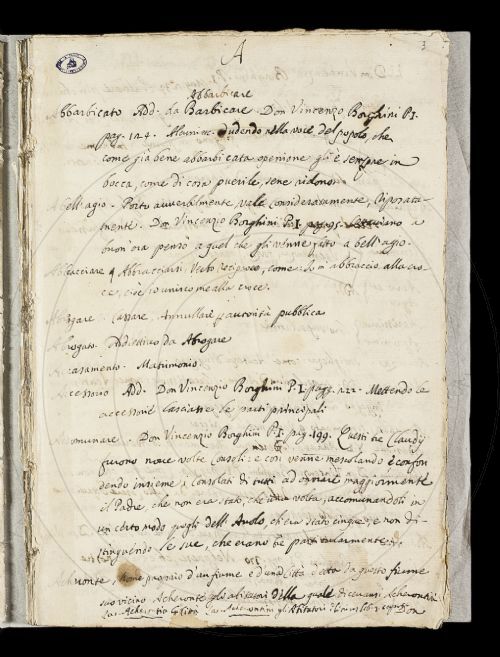 A
3
Abbarbicare
Abbarbicato Add. da Barbicare. Don Vincenzo Borghini P. I.
pag. 124. alludendo nella voce del popolo, che
come già bene abbarbicata openione gli è sempre in
bocca, come di cosa puerile, sene ridono.
A bell'agio. Posto avverbialmente, vale consideratamente, riposata-
mente. Don Vincenzio Borghini P. I. pag. 95. Ottaviano a
buon'ora pensò a quel che gli venne fatto a bell'agio.
Abbracciare Abbracciarsi Verbo reciproco, come: Io m'abbraccio alla cro-
ce, cioè io unirome alla croce.
Abrogare Cassare, Annullare per autorità pubblica
Abrogato Addiettivo da Abrogare
Accasamento. Matrimonio
Accessorio Add. Don Vincenzio Borghini P. I. pag. 122. Mettendo le
accessorie lasciasse le parti principali
Accomunare. Don Vincenzio Borghini P. I. pag. 199. Questi tre Claudj
furono nove volte Consoli: e così venne mescolando e confon
dendo insieme i Consolati di tutti ad onorare maggiormente
il Padre, che non era stato che una volta, accomunandoli in
un certo modo quegli dell'Avolo, ch'era stato cinque, e non di-
stinguendo le sue, che erano tre particularmente.
Acheronte, Nome proprio d'un fiume e d'una Città detta da questo fiume
suo vicino Acheronte gli abitatori della quale dicevansi Acherontini
Don